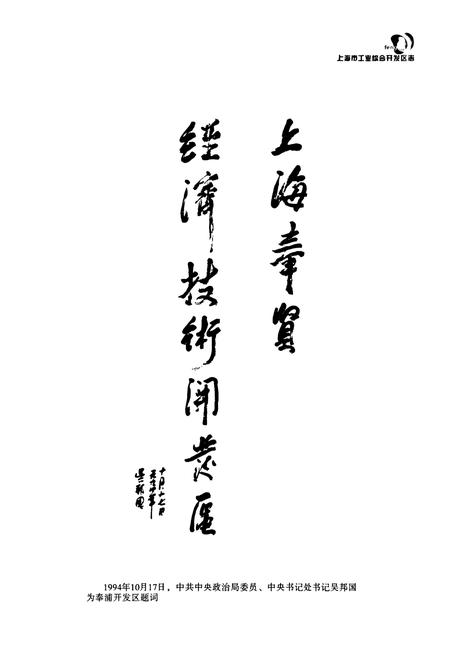 fen
上海市工业综合开发区志
上海奉贤
經濟技術開發區
十月十七日
吴邦国
1994年10月17日，中共中央政治局委员、中央书记处书记吴邦国
为奉浦开发区题词